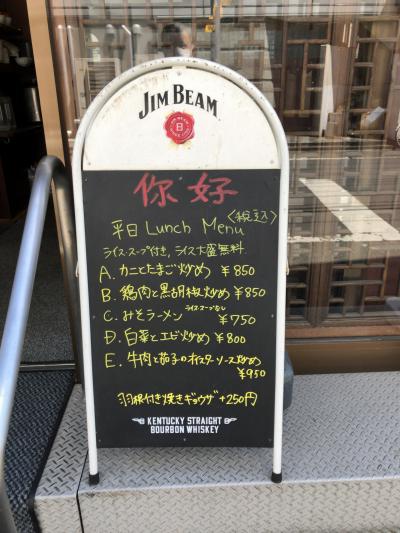 JIM BEAM
你好
<税込>
平日 Lunch Menu
ライス・スープ付き、ライス大盛無料
A. カニとたまご炒め ¥850
B. 鶏肉と黒胡椒炒め ¥850
C. みそラーメン ライス・スープなし ¥750
D. 白菜とエビ炒め ¥800
E. 牛肉と茄子のオイスターソース炒め
¥950
羽根付き焼きギョウザ +250円
KENTUCKY STRAIGHT
BOURBON WHISKEY